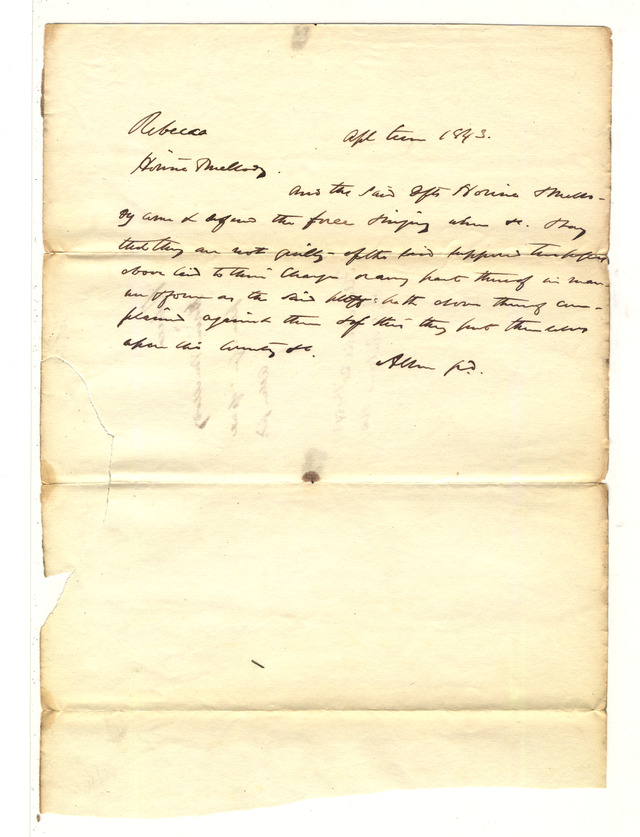 Rebecca Apl term 1843.
Horine & Mellody.
And the said Dfts Horine & Mello-
dy come & defend the force & injury when &c. & say
that they are not guilty of the said supposed trespasses
above laid to their charge or any part thereof in man-
ner & form as the said pltff: hath above thereof com-
plained against them & of this they put themselves
upon the country &c.
p.d.